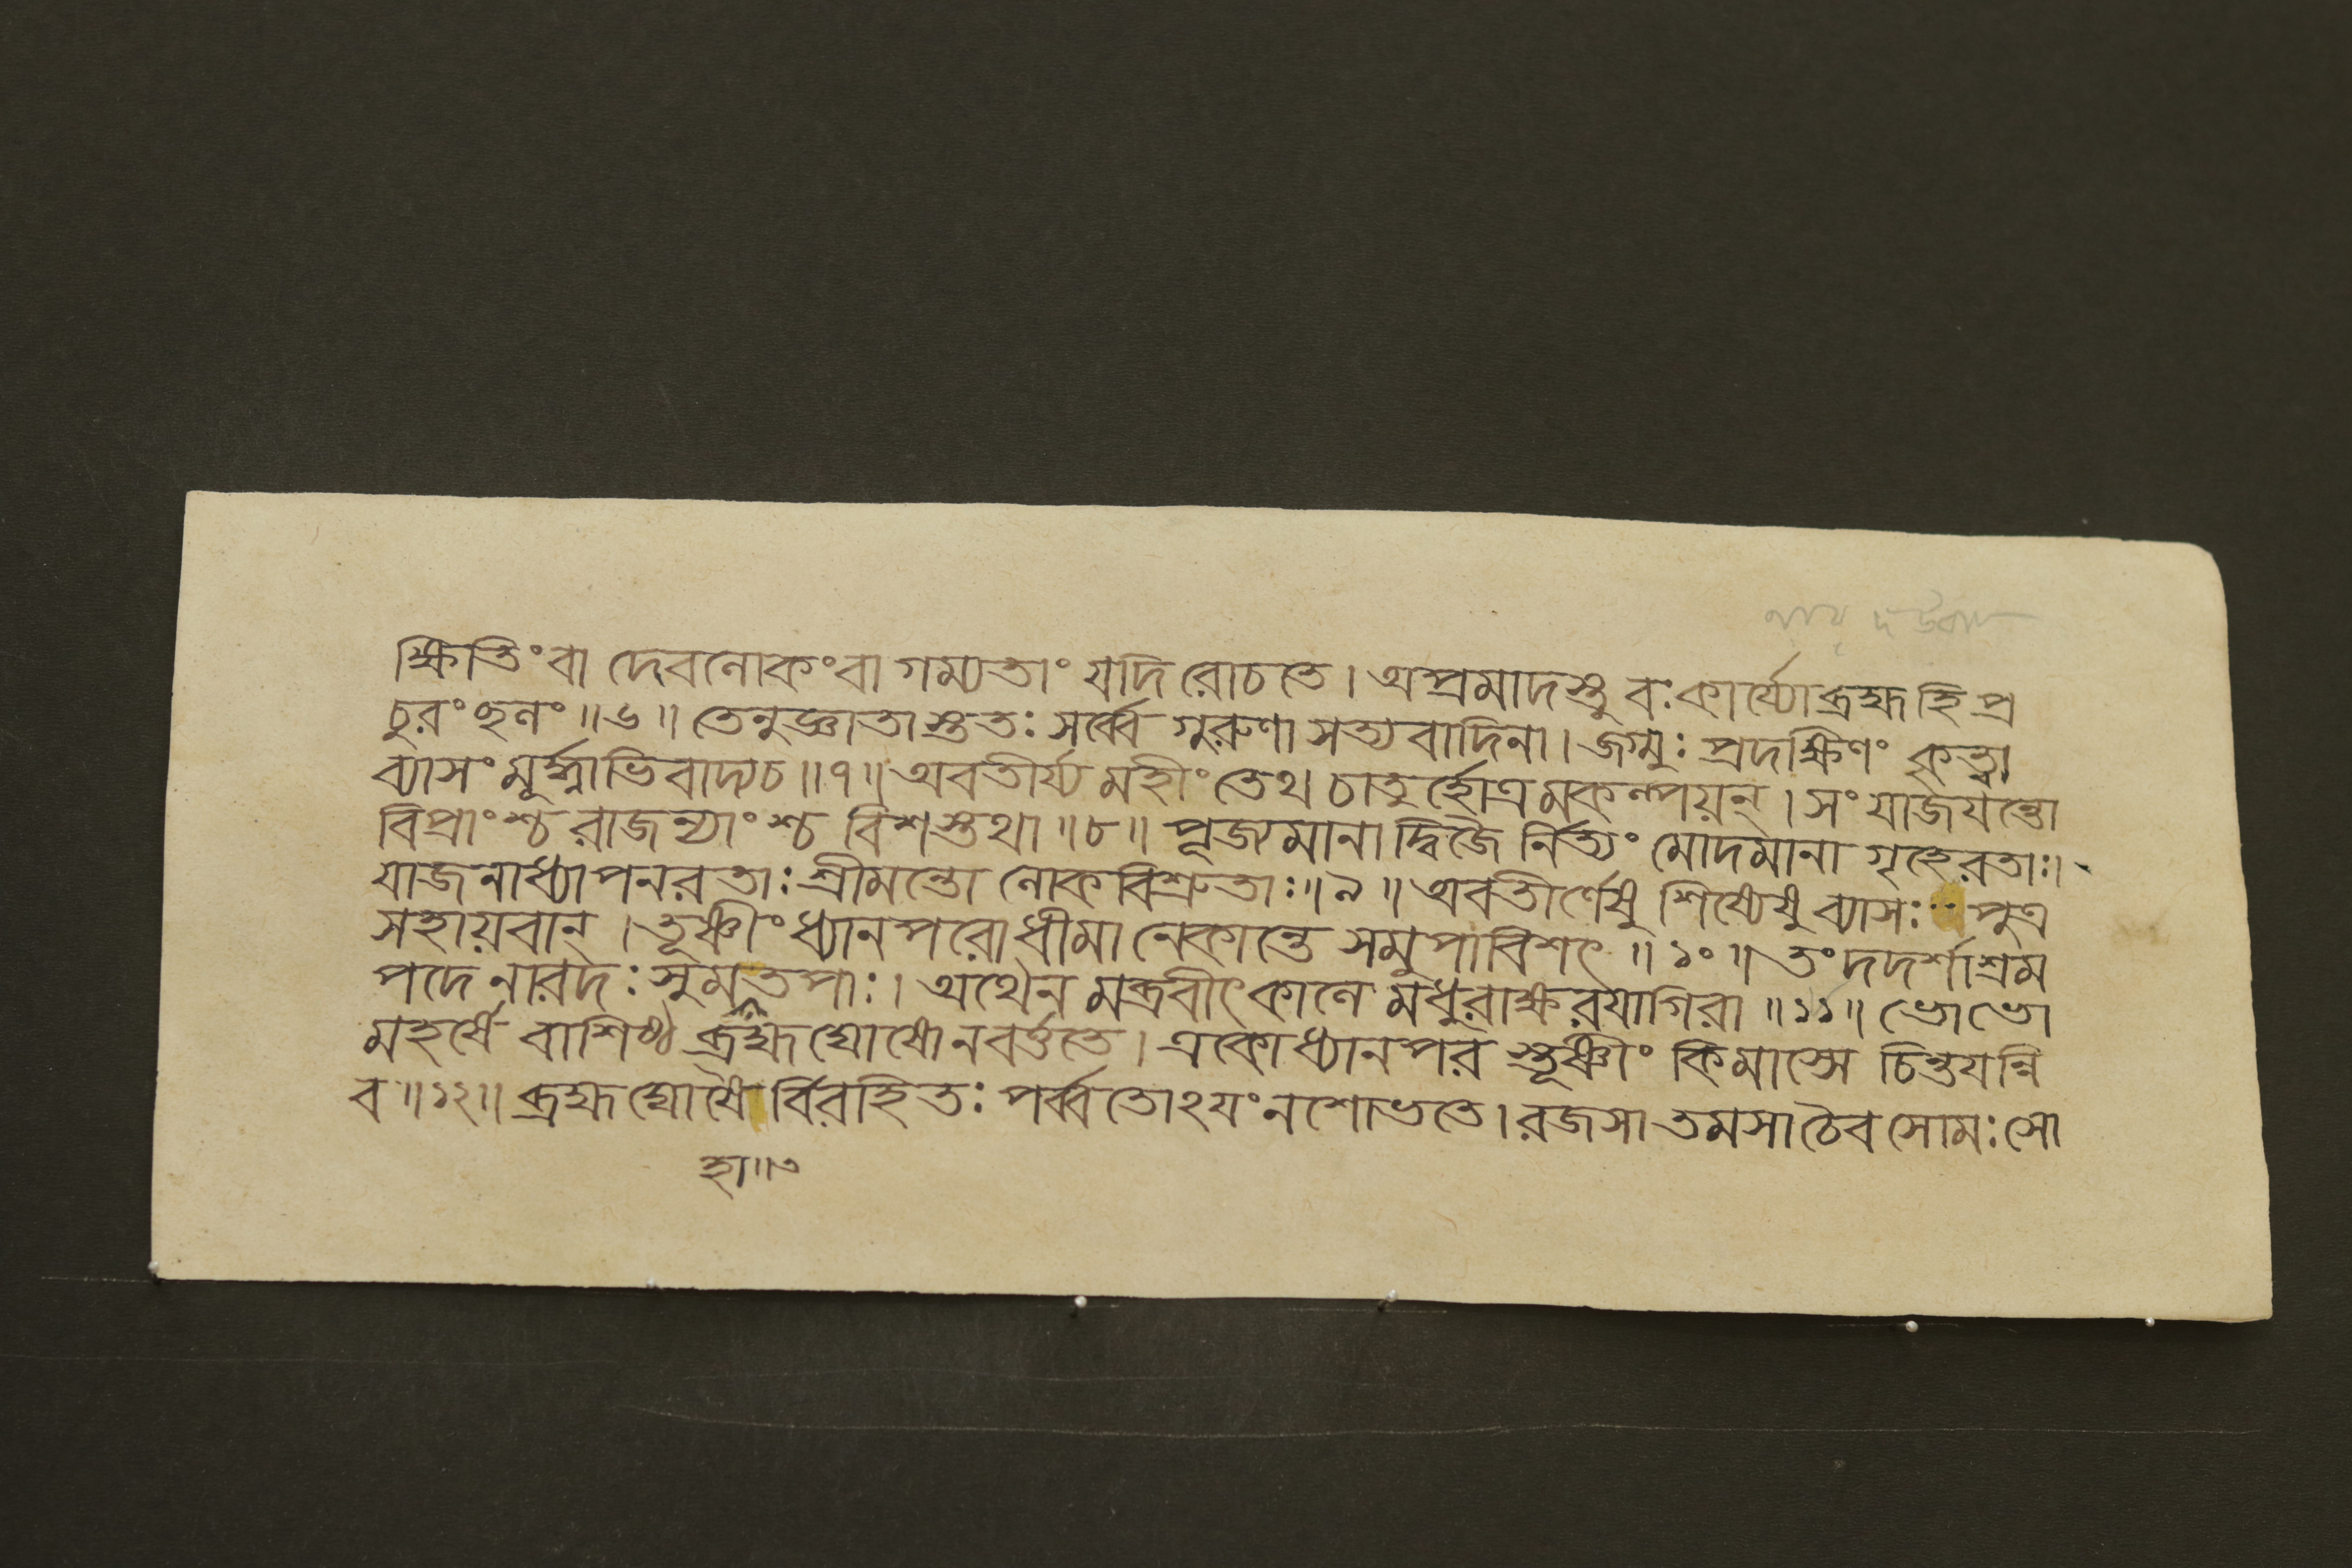 ক্ষিতিং বা দেবলোকং বা গম্যতাং যদি রোচতে । অপ্রমাদস্তু বঃ কার্য্যো ব্রহ্ম হি প্র
চুরং ছলং ॥ ৬ ॥ তেনুজ্ঞাতাস্ততঃ সর্ব্বে গুরুণা সত্যবাদিনা । জগ্মুঃ প্রদক্ষিণং কৃত্বা
ব্যাসং মূর্দ্ধ্নাভিবাদ্য চ ॥ ৭ ॥ অবতীর্য্য মহীং তেথ চাতুর্হোত্রমকল্পয়ন্ । সংযাজয়ন্তো
বিপ্রাংশ্চ রাজন্যাংশ্চ বিশস্তথা ॥ ৮ ॥ পূজ্যমানা দ্বিজৈর্নিত্যং মোদমানা গৃহে রতাঃ ।
যাজনাধ্যাপনরতাঃ শ্রীমন্তো লোকবিশ্রুতাঃ ॥ ৯ ॥ অবতীর্ণেষু শিষ্যেষু ব্যাসঃ পুত্র
সহায়বান্ । তূষ্ণীং ধ্যানপরো ধীমানেকান্তে সমুপাবিশৎ ॥ ১০ ॥ তং দদর্শাশ্রম
পদে নারদঃ সুমতপাঃ । অথৈনমব্রবীৎ কালে মধুরাক্ষরয়া গিরা ॥ ১১ ॥ ভো ভো
মহর্ষে বাশিষ্ঠ ব্রহ্মঘোষো ন বর্ত্ততে । একো ধ্যানপরস্তূষ্ণীং কিমাস্সে চিন্তয়ন্নি
ব ॥ ১২ ॥ ব্রহ্মঘোষৈর্বিরহিতঃ পর্ব্বতোঽয়ং ন শোভতে । রজসা তমসা চৈব সোমঃ সো
হা ॥ ৩